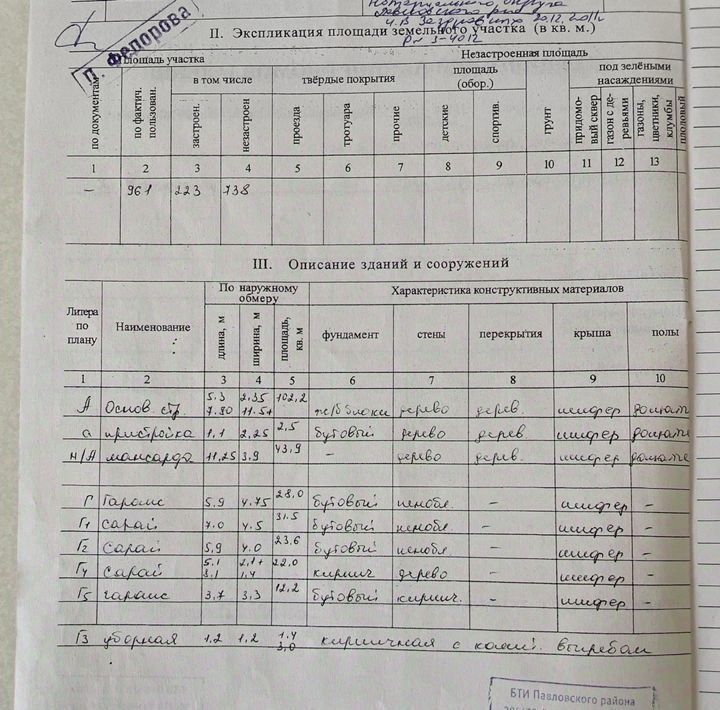 нотариального округа
Павловского
20.12.2011г
Р№ 3-4012
П. Федорова
II. Экспликация площади земельного участка (в кв. м.)
площадь участка
Незастроенная площадь
в том числе
твёрдые покрытия
площадь (обор.)
под зелёными насаждениями
по документам
по фактич. пользован.
застроен.
незастроен
проезда
тротуара
прочие
детские
спортив.
грунт
придомовый сквер
газон с деревьями
газоны, цветники, клумбы
плодовый
1 2 3 4 5 6 7 8 9 10 11 12 13
– 961 223 738
III. Описание зданий и сооружений
Литера по плану
Наименование
По наружному обмеру
Характеристика конструктивных материалов
длина, м
ширина, м
площадь, кв. м
фундамент
стены
перекрытия
крыша
полы
1 2 3 4 5 6 7 8 9 10
5.3 2.35 102,2
А Основ. стр. 7.80 11.5+ ж/б блоки дерево дерев. шифер дощат
а пристройка 1,1 2,25 2,5 бутовый дерево дерев шифер дощаты
н/А мансарда 11,25 3,9 43,9 – дерево дерев. шифер дощаты
Г Гараж 5.9 4.75 28,0 бутовый пенобл. – шифер –
Г1 Сарай 7.0 4.5 31.5 бутовый пенобл. – шифер –
Г2 Сарай 5,9 4.0 23,6 бутовый пенобл. – шифер –
5.1 2,1+
Г4 Сарай 8.1 1,4 22,0 кирпич дерево – шифер –
Г5 гараж 3,7 3,3 12,2 бутовый кирпич. – шифер –
Г3 уборная 1,2 1,2 1.4 кирпичная с выгребом
3,0
БТИ Павловского района